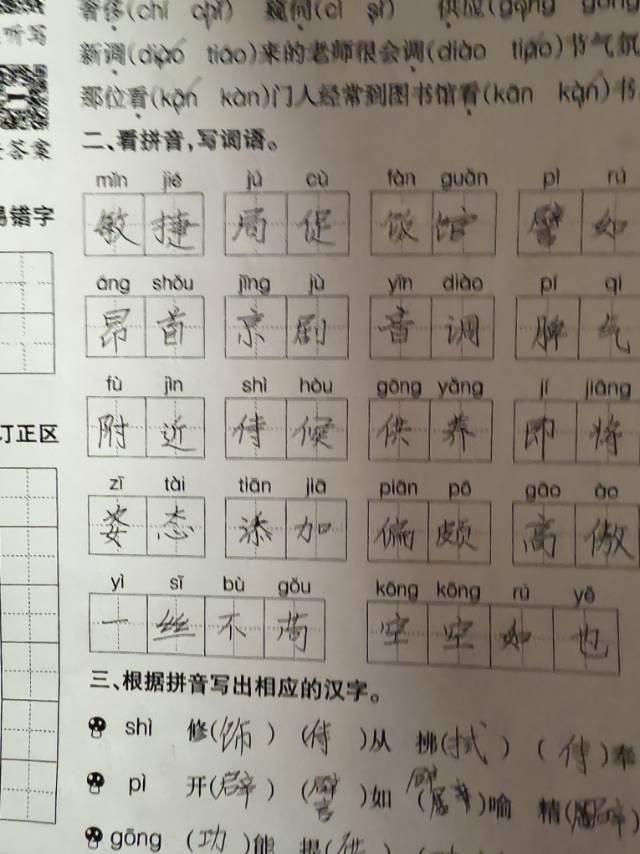 奢侈(chǐ chí) 窥伺(cì sì) 供应(gōng
听写
新调(diào tiáo)来的老师很会调(diào tiáo)节气氛
那位看(kān kàn)门人经常到图书馆看(kān kàn)书
答案
二、看拼音,写词语。
mǐn jié jú cù fàn guǎn pì rú
易错字
敏捷 局促 饭馆 譬如
áng shǒu jīng jù yīn diào pí qi
昂首 京剧 音调 脾气
fù jìn shì hòu gōng yǎng jí jiāng
订正区
附近 侍候 供养 即将
zī tài tiān jiā piān pō gāo ào
姿态 添加 偏颇 高傲
yì sī bù gǒu kōng kōng rú yě
一丝不苟 空空如也
三、根据拼音写出相应的汉字。
shì 修(饰) (侍)从 挑(拭) (侍)奉
pì 开(辟) (譬)如 喻 精
gōng (功)能